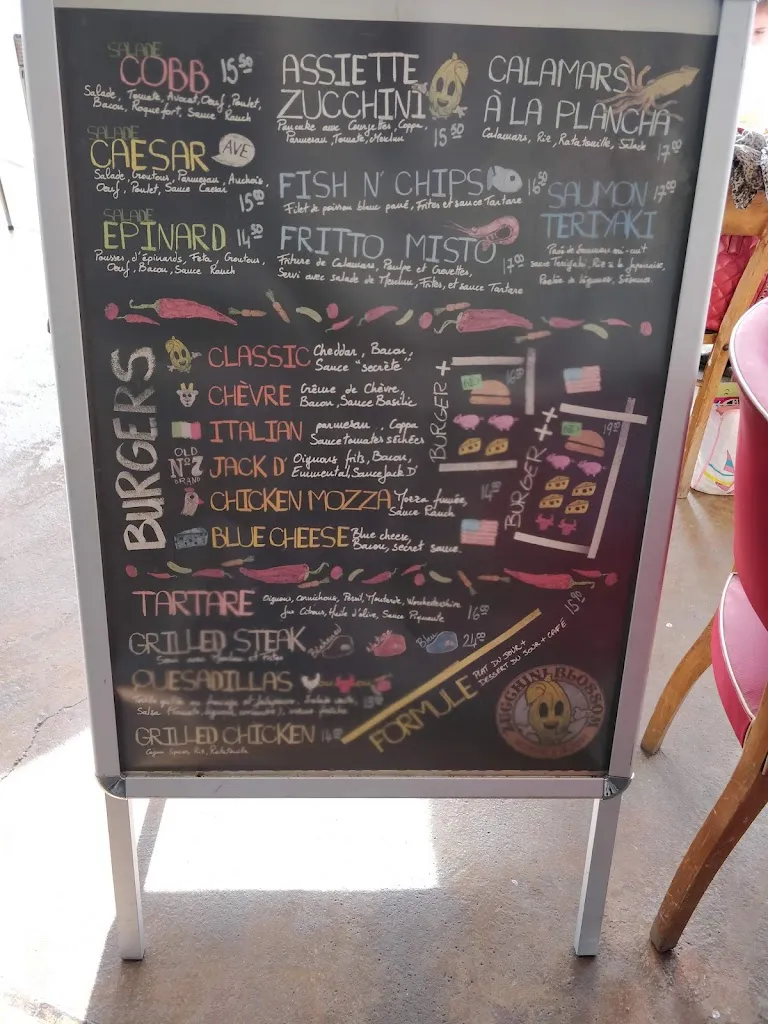 SALADE
COBB 15⁵⁰
Salade, Tomate, Avocat, Oeuf, Poulet,
Bacon, Roquefort, Sauce Ranch
SALADE
CAESAR AVE
Salade, Croutons, Parmesan, Anchois,
Oeuf, Poulet, Sauce Caesar
15⁰⁰
SALADE
EPINARD 14⁵⁰
Pousses d'épinards, Feta, Croutons,
Oeuf, Bacon, Sauce Ranch
ASSIETTE
ZUCCHINI
Pancake aux Courgettes, Coppa,
Parmesan, Tomate, Mesclun
15⁵⁰
CALAMARS
À LA PLANCHA
Calamars, Riz, Ratatouille, Salade
17⁰⁰
FISH N' CHIPS 16⁵⁰
Filet de poisson blanc pané, Frites et sauce Tartare
FRITTO MISTO
Friture de Calamars, Poulpe et Crevettes,
Servi avec salade de Mesclun, Frites, et sauce Tartare
17⁰⁰
SAUMON 17⁰⁰
TERIYAKI
Pavé de saumon mi-cuit
sauce Teriyaki, Riz à la Japonaise,
Poêlée de légumes, Sésames.
BURGERS
CLASSIC Cheddar, Bacon,
Sauce "secrète"
CHÈVRE Crème de Chèvre,
Bacon, Sauce Basilic
ITALIAN parmesan, Coppa
Sauce tomates séchées
OLD
Nº7
BRAND
JACK D' Oignons frits, Bacon,
Emmental, Sauce Jack D'
CHICKEN MOZZA Mozza fumée,
Sauce Ranch
BLUE CHEESE Blue cheese,
Bacon, secret sauce.
14⁵⁰
BURGER +
16⁵⁰
BURGER ++
19⁵⁰
TARTARE Oignons, cornichons, Persil, Moutarde, Worchestershire
jus Citron, Huile d'olive, Sauce Piquante
16⁵⁰
GRILLED STEAK Bleu 24⁰⁰
QUESADILLAS
GRILLED CHICKEN
FORMULE PLAT DU JOUR +
DESSERT DU JOUR + CAFÉ 15⁹⁰
ZUCCHINI BLOSSOM